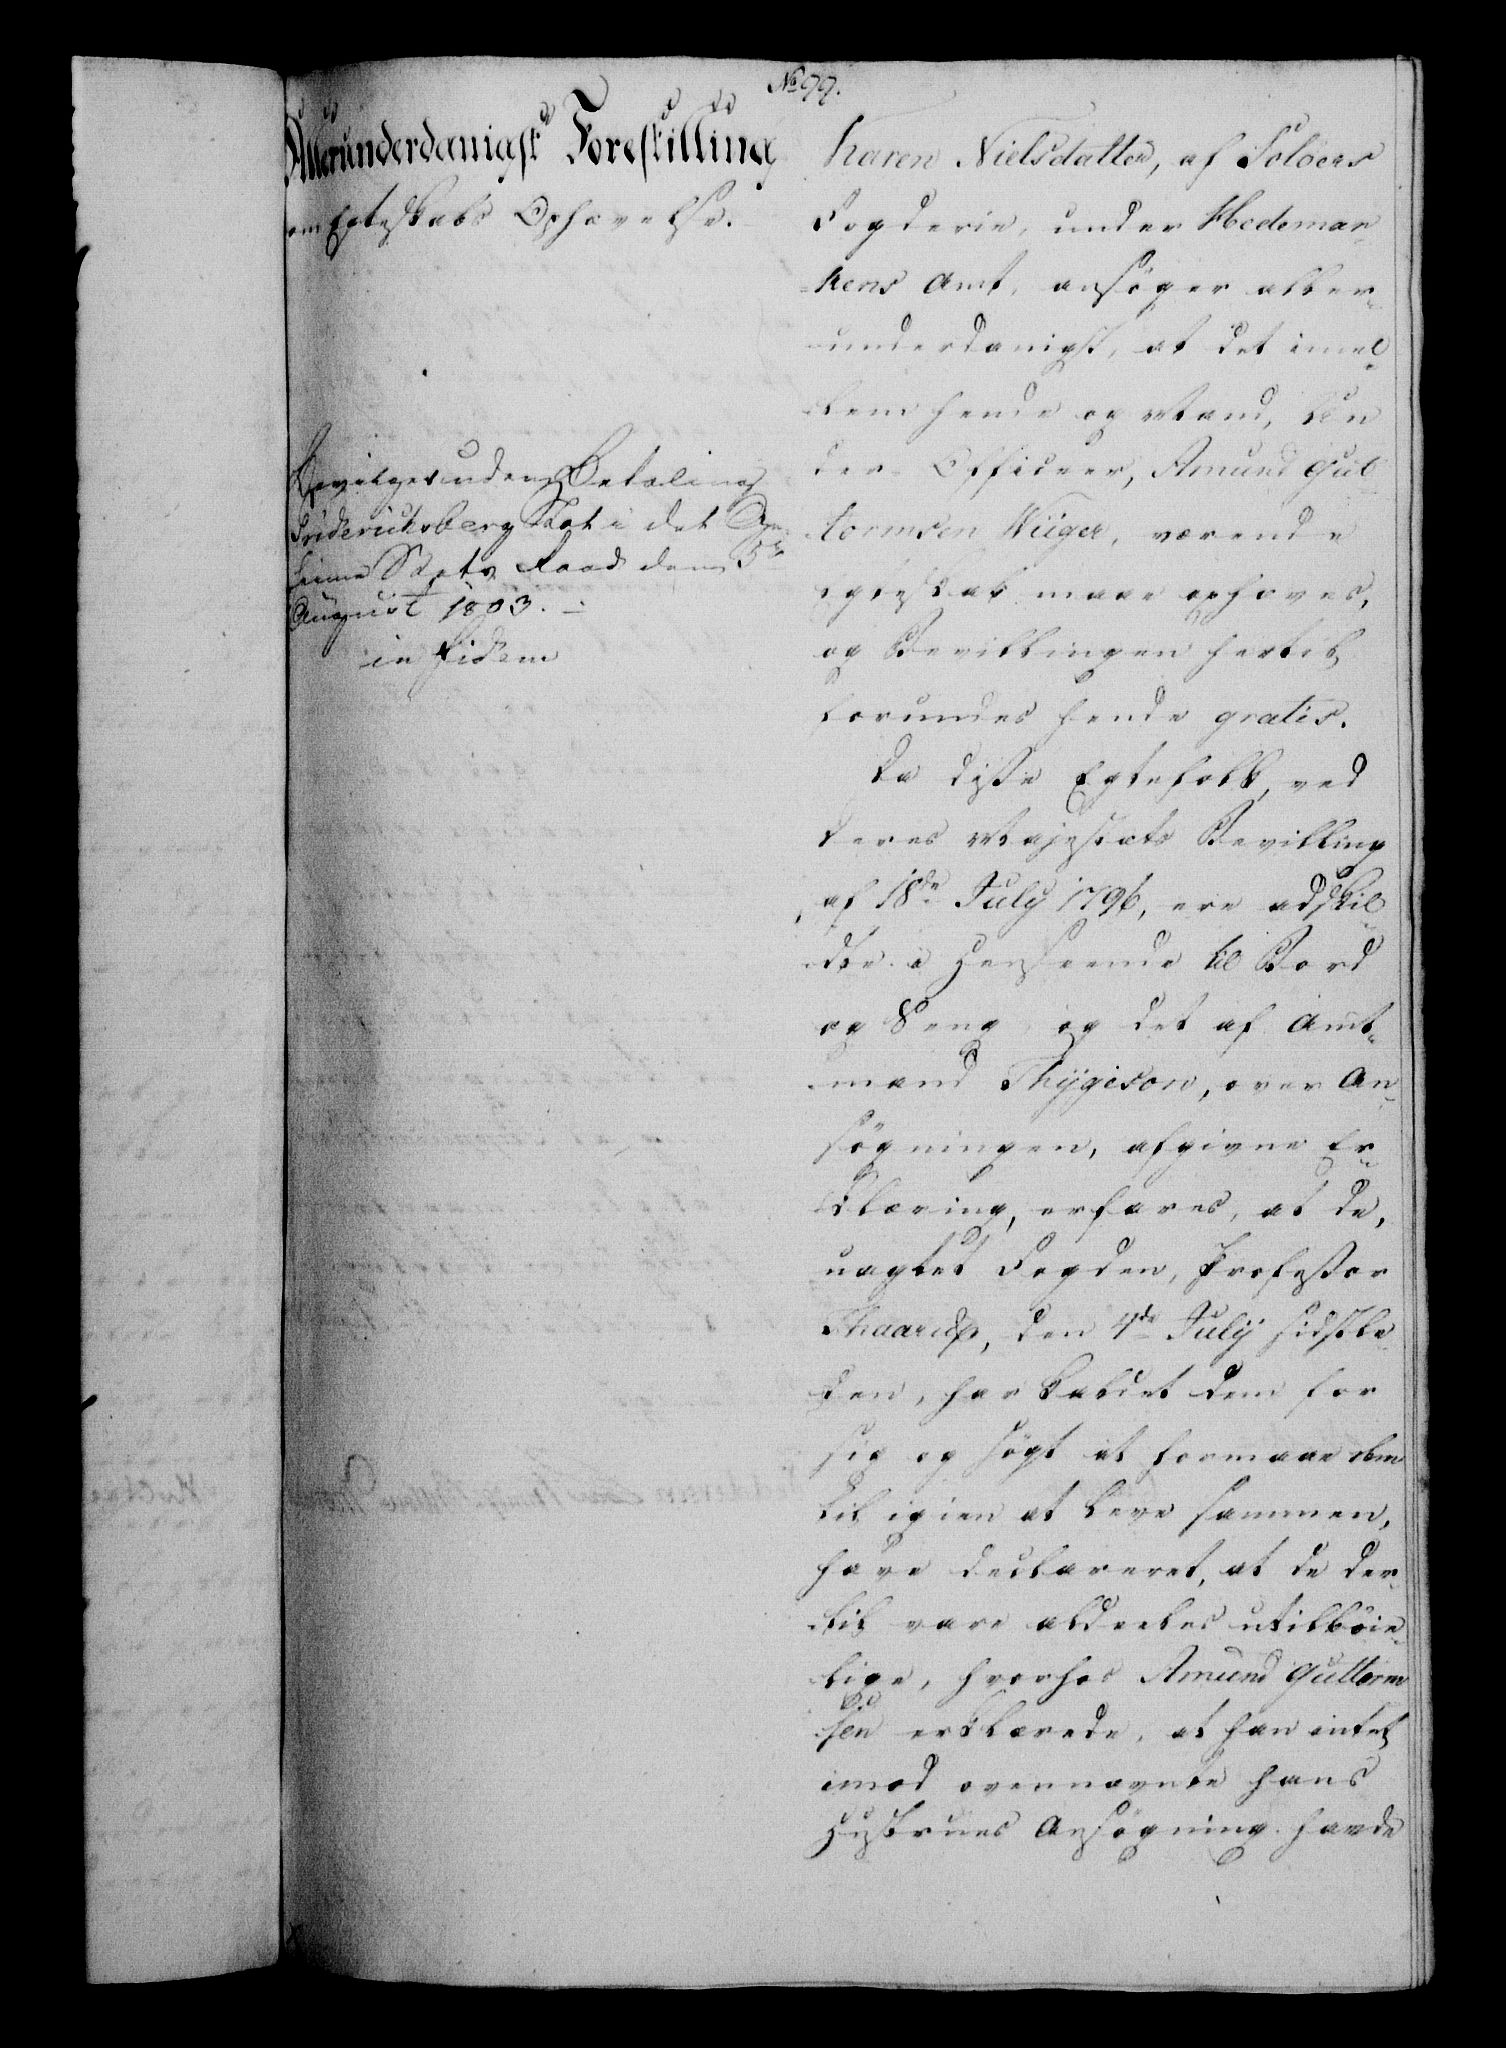 No 99.
Allerunderdanigst Forestilling
om Egteskabs Ophævelse.
Bevilges uden Betaling
Friderichsberg Slot i det Ge-
heime Stats Raad den 5te
August 1803.
in fidem
Karen Nielsdatter, af Soloers
Fogderie, under Hedemar-
kens Amt, ansøger aller-
underdanigst, at det imel-
lem hende og Mand, Un-
der-Officeer, Amund Gul-
tormsen Wiiger, værende
Egteskab maae ophæves,
og Bevillingen hertil
forundes hende gratis.
Da disse Egtefolk, ved
Deres Majestæts Bevilling
af 18de July 1796, ere adskil-
te i Henseende til Bord
og Seng, og det af Amt-
mand Thygeson, over An-
søgningen, afgivne Er-
klæring, erfares, at de,
uagtet Fogden, Professor
Thaarup, den 4de July sidstle-
den, har kaldet dem for
sig og søgt at formaae dem
til igien at leve sammen,
have declareret, at de der-
til vare aldeeles utilbøie-
lige, hvorhos Amund Guttorm-
sen erklærede, at han intet
imod ovennævnte hans
Hustrues Ansøgning havde